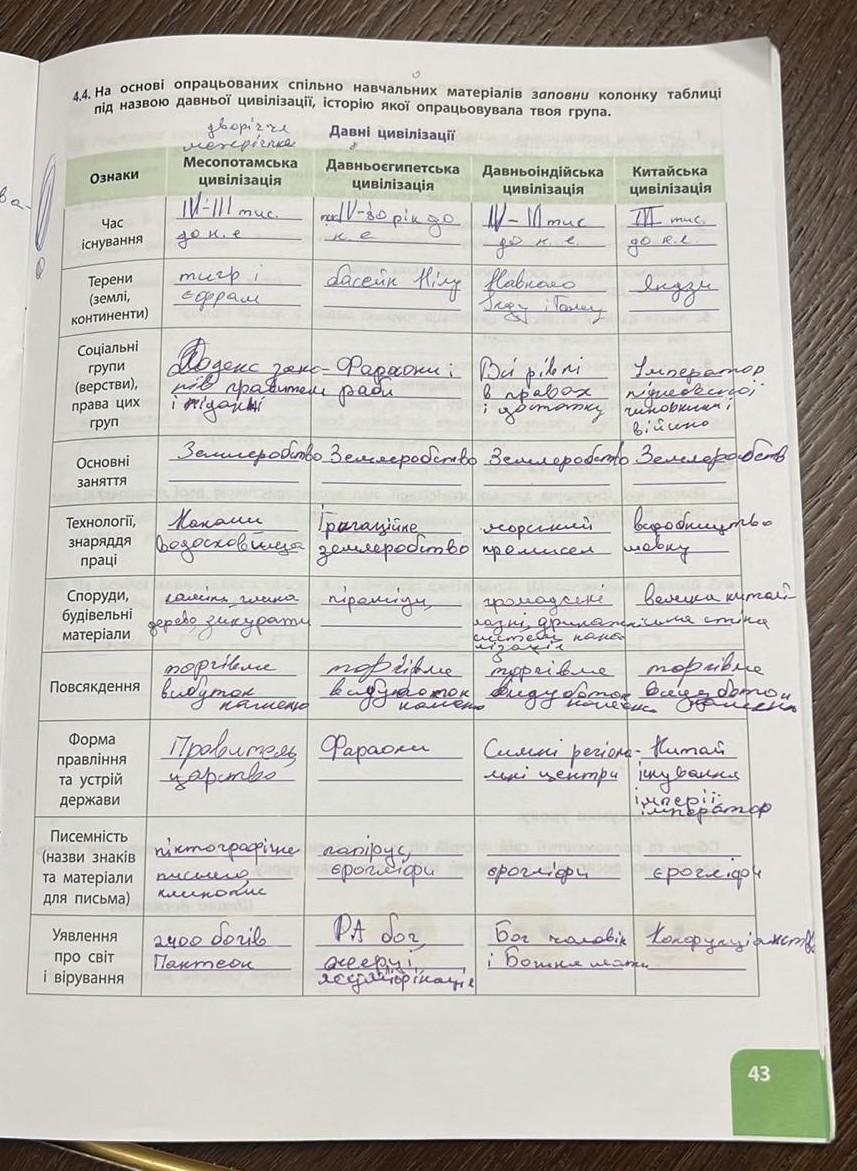 4.4. На основі опрацьованих спільно навчальних матеріалів заповни колонку таблиці
під назвою давньої цивілізації, історію якої опрацьовувала твоя група.
дворіччя
Давні цивілізації
Ознаки
Месопотамська
цивілізація
Давньоєгипетська
цивілізація
Давньоіндійська
цивілізація
Китайська
цивілізація
Час
існування
IV-III тис.
до н.е
IV-
до
н е
IV-III тис
до н. е.
III тис.
до н.е.
Терени
(землі,
континенти)
тигр і
басейн Нілу
Навколо
Інду і Гангу
Янцзи
Соціальні
групи
(верстви),
права цих
груп
Кодекс зако-
нів правителя
і піддані
Фараони і
раби
Всі рівні
в правах
і достатку
Імператор
чиновники і
Основні
заняття
Землеробство
Землеробство
Землеробство
Землеробств
Технології,
знаряддя
праці
Канали
Водосховища
Іригаційне
землеробство
морський
промисел
видобництво
шовку
Споруди,
будівельні
матеріали
камінь, глина
дерево, зикурати
піраміди
громадські
лазні,
система кана
лізація
велика китай-
стіна
Повсякдення
торгівля
видуток
каменю
торгівля
каменю
торгівля
торгівля
Форма
правління
та устрій
держави
Правитель,
царство
Фараони
Сильні регіона-
льні центри
Китай
існування
імперії
імператор
Писемність
(назви знаків
та матеріали
для письма)
піктографічне
письмо
клинопис
папірус,
єрогліфи
єрогліфи
єрогліфи
Уявлення
про світ
і вірування
2400 богів
Пантеон
РА бог
жерці
Бог чоловік
і Божня мати
43